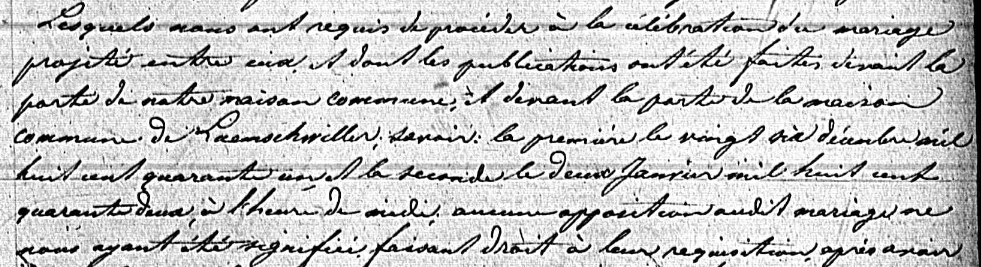 Lesquels nous ont requis de procéder à la célébration du mariage
projeté entre eux, et dont les publications ont été faites devant la
porte de notre maison commune, et devant la porte de la maison
commune de Knoerschwiller, savoir: la première le vingt six décembre mil
huit cent quarante un et la seconde le deux Janvier mil huit cent
quarante deux, à l'heure de midi, aucune opposition audit mariage ne
nous ayant été signifiée, faisant droit à leur requisition, après avoir